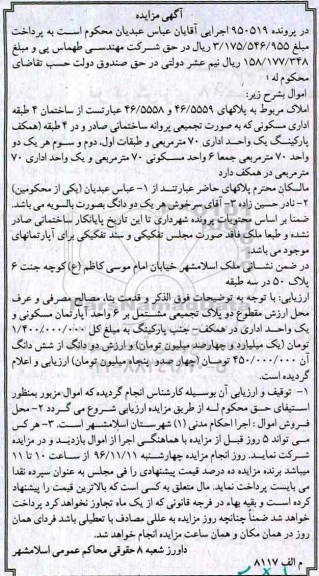 آگهی مزایده
در پرونده ۹۵۰۵۱۹ اجرایی آقایان عباس عبدیان محکوم است به پرداخت
مبلغ ۳/۱۷۵/۵۴۶/۹۵۵ ریال در حق شرکت مهندسی طهماس پی و مبلغ
۱۵۸/۱۷۷/۳۴۸ ریال نیم عشر دولتی در حق صندوق دولت حسب تقاضای
محکوم له ؛
اموال بشرح زیر:
املاک مربوط به پلاکهای ۴۶/۵۵۵۹ و ۴۶/۵۵۵۸ عبارتست از ساختمان ۴ طبقه
اداری مسکونی که به صورت تجمیعی پروانه ساختمانی صادر و در ۴ طبقه (همکف
پارکینگ یک واحد اداری ۷۰ مترمربعی و طبقات اول، دوم و سوم هر یک دو
واحد ۷۰ مترمربعی جمعا ۶ واحد مسکونی ۷۰ مترمربعی و یک واحد اداری ۷۰
مترمربعی در همکف دارد
مالکان محترم پلاکهای حاضر عبارتند از ۱- عباس عبدیان (یکی از محکومین)
۲- نادر حسین زاده ۳- آقای سرخوش هر یک دو دانگ بصورت بالسویه می باشد.
ضمنا بر اساس محتویات پرونده شهرداری تا این تاریخ پایانکار ساختمانی صادر
نشده و طبعا ملک فاقد صورت مجلس تفکیکی و سند تفکیکی برای آپارتمانهای
موجود می باشد.
در ضمن نشانی ملک اسلامشهر خیابان امام موسی کاظم (ع) کوچه جنت ۶
پلاک ۵۰ در سه طبقه
ارزیابی: با توجه به توضیحات فوق الذکر و قدمت بنا، مصالح مصرفی و عرف
محل ارزش مقطوع دو پلاک تجمیعی مشتمل بر ۶ واحد آپارتمان مسکونی و
یک واحد اداری در همکف- جنب پارکینگ به مبلغ کل ۱/۴۰۰/۰۰۰/۰۰۰
تومان (یک میلیارد و چهارصد میلیون تومان) و ارزش دو دانگ از شش دانگ
آن ۴۵۰/۰۰۰/۰۰۰ تومان (چهار صدو پنجاه میلیون تومان) ارزیابی و اعلام
گردیده است.
۱- توقیف و ارزیابی آن بوسیله کارشناس انجام گردیده که اموال مزبور بمنظور
استیفای حق محکوم له از طریق مزایده ارزیابی شروع می گردد ۲- محل
فروش اموال : اجرا احکام مدنی (۱) شهرستان اسلامشهر است. ۳- هر کس
می تواند ۵ روز قبل از مزایده با هماهنگی اجرا از اموال بازدید و در مزایده
شرکت نمایند. روز انجام مزایده چهارشنبه ۹۶/۱۱/۱۱ از ساعت ۱۰ تا ۱۱
میباشد برنده مزایده ده درصد قیمت پیشنهادی را فی مجلس به عنوان سپرده نقدا
می بایست پرداخت نماید. مال متعلق به کسی است که بالاترین قیمت را پیشنهاد
کرده است و بقیه بهاء در فرجه قانونی که از یک ماه تجاوز نخواهد کرد پرداخت
خواهد شد ضمناً چنانچه روز مزایده به عللی مصادف با تعطیلی باشد فردای همان
روز در همان مکان و همان ساعت مزایده انجام خواهد شد.
داورز شعبه ۸ حقوقی محاکم عمومی اسلامشهر
م الف ۸۱۱۷